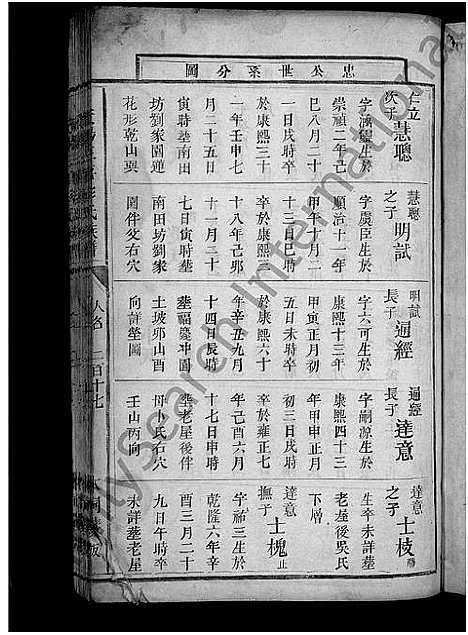 忠公世系分圖
立
次子
慧聰
字 生於
崇禎二年己
巳八月二十
一日戌時卒
於康熙三十
一年壬申七
月二十五日
寅時塟南田
坊劉家園蓮
花形乾山巽
慧聰
之子
明試
字虞臣生於
順治十一年
甲午十月二
十三日巳時
卒於康熙三
十八年己卯
十一月二十
七日寅時塟
南田坊劉家
園伴父右穴
明試
長子
遍經
字六可生於
康熙十三年
甲寅正月初
五日未時卒
於康熙六十
年辛丑九月
十四日辰時
塟福慶冲園
土坡卯山酉
向詳塋圖
遍經
長子
達意
字嗣源生於
康熙四十三
年甲申正月
初三日戌時
卒於雍正七
年己酉六月
十七日申時
塟老屋後伴
母卜氏右穴
壬山丙向
達意
之子
士枝
生卒未詳塟
老屋後吳氏
下層
達意
撫子
士槐 止
字 三生於
乾隆六年辛
酉三月二十
九日午時卒
未詳塟老屋
氏族譜
二百十七